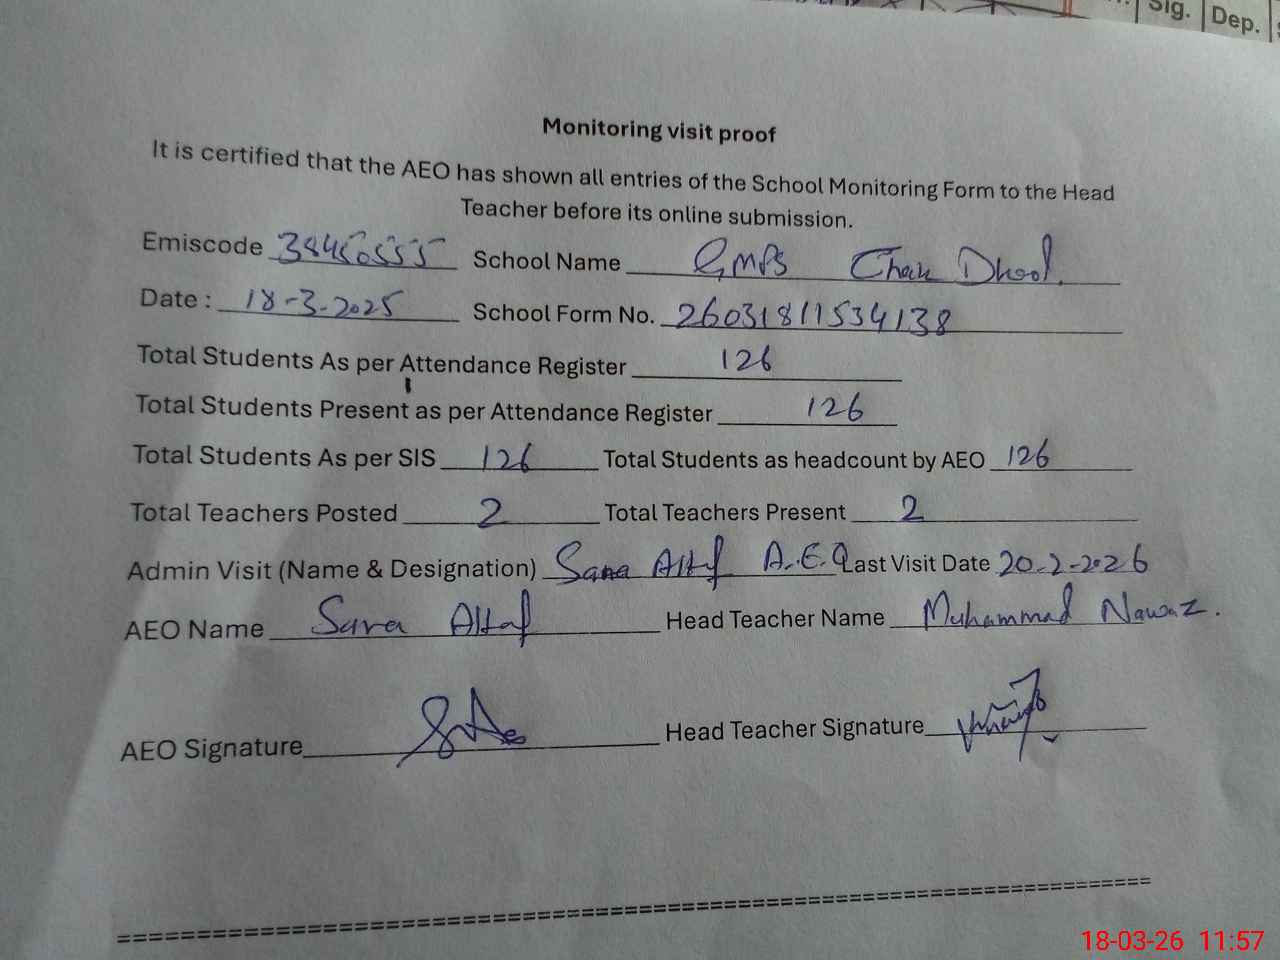 Sig. Dep.
Monitoring visit proof
It is certified that the AEO has shown all entries of the School Monitoring Form to the Head
Teacher before its online submission.
Emiscode 38450555 School Name GMPS Chak Dhool.
Date : 18-3-2025 School Form No. 26031811534138
Total Students As per Attendance Register 126
Total Students Present as per Attendance Register 126
Total Students As per SIS 126 Total Students as headcount by AEO 126
Total Teachers Posted 2 Total Teachers Present 2
Admin Visit (Name & Designation) Sana Altaf A.E.O Last Visit Date 20-2-2026
AEO Name Sana Altaf Head Teacher Name Muhammad Nawaz.
AEO Signature Head Teacher Signature
18-03-26 11:57